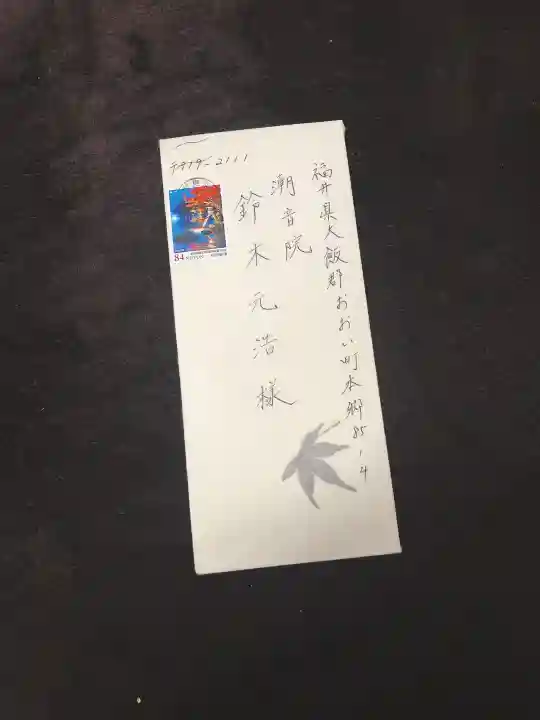 〒919-2111
福井県大飯郡おおい町本郷85-4
潮音院
鈴木元浩様
84